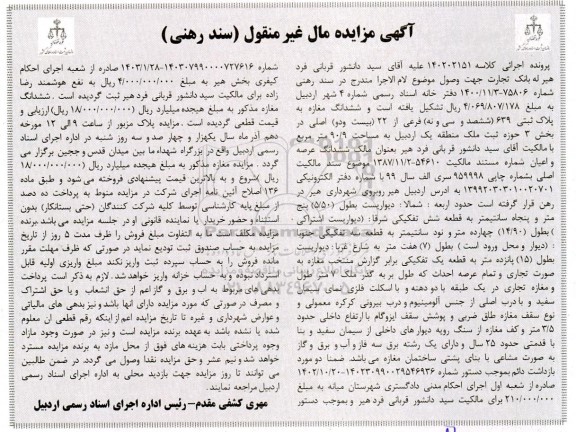 آگهی مزایده مال غیر منقول (سند رهنی)
پرونده اجرائی کلاسه ۱۴۰۲۰۲۱۵۱ علیه آقای سید دانشور قربانی فرد
هیر له بانک تجارت جهت وصول موضوع لازم الاجرا مندرج در سند رهنی
شماره ۷۵۸۰۶-۱۴۰۰/۱۱/۳ دفتر خانه اسناد رسمی شماره ۴ شهر اردبیل
به مبلغ ۴/۰۶۹/۸۰۷/۱۷۸ ریال تشکیل یافته است و ششدانگ مغازه به
پلاک ثبتی ۶۳۹ (ششصد و سی و نه) فرعی از ۲۲ (بیست ودو) اصلی در
بخش ۳ حوزه ثبت ملک منطقه یک اردبیل به مساحت ۹۰/۹ متر مربع
با مالکیت آقای سید دانشور قربانی فرد هیر بعنوان مالک ششدانگ عرصه
و اعیان شماره مستند مالکیت ۵۴۶۱۰-۱۳۸۷/۱۱/۲ موضوع سند مالکیت
اصلی بشماره چاپی ۹۵۹۹۹۸ سری الف سال ۹۹ با شماره دفتر الکترونیکی
۱۳۹۹۲۰۳۰۳۰۱۰۰۲۰۷۰۱ به ادرس اردبیل هیر روبروی شهرداری هیر در
رهن قرار گرفته است حدود اربعه : شمالا: دیواریست بطول (۵/۵۰) پنج
متر و پنجاه سانتیمتر به قطعه شش تفکیکی شرقا: (دیواریست اشتراکی
) بطول (۱۴/۹۰) چهارده متر و نود سانتیمتر به قطعه یک تفکیکی جنوبا
: (دیوار و محل ورود است ) بطول (۷) هفت متر به شارع غربا : دیواریست
بطول (۱۵) پانزده متر به قطعه یک تفکیکی برابر گزارش منتخب مغازه به
صورت تجاری و تمام عرصه احداث که طول بر به گذر آن ۷ متر طول
و مغازه تجاری در یک طبقه با دو دهنه و با اسکلت فلزی نمای سنگ
سفید و با درب اصلی از جنس آلومینیوم و درب بیرونی کرکره معمولی و
نوع سقف مغازه طاق ضربی و پوشش سقف ایزوگام با ارتفاع داخلی حدود
۳/۵ متر و کف مغازه از سنگ رویه دیوار های داخلی از سیمان سفید و بنا
با قدمتی حدود ۲۵ سال و دارای یک رشته برق سه فاز و آب و برق و گاز
به صورت مشاعی با بنای پشتی ساختمان مغازه می باشد. ضمنا دو مورد
بازداشت دائم بموجب دستور شماره ۱۴۰۲۳۰۹۹۰۰۰۲۹۵۴۶۹۳۶-۱۴۰۲/۱۰/۲۰
صادره از شعبه اول اجرای احکام مدنی دادگستری شهرستان میانه به مبلغ
۲۱۰/۰۰۰/۰۰۰ برای مالکیت سید دانشور قربانی فرد هیر و بموجب دستور
شماره ۱۴۰۳۰۷۹۹۰۰۰۰۷۲۷۶۱۶-۱۴۰۳/۱/۲۸ صادره از شعبه اجرای احکام
کیفری بخش هیر به مبلغ ۴/۰۰۰/۰۰۰/۰۰۰ ریال به نفع هوشمند رضا
زاده برای مالکیت سید دانشور قربانی فرد هیر ثبت گردیده است . ششدانگ
مغازه مذکور به مبلغ هیجده میلیارد ریال (۱۸/۰۰۰/۰۰۰/۰۰۰ ریال) ارزیابی و
قیمت قطعی گردیده است . مزایده پلاک مزبور از ساعت ۹ الی ۱۲ مورخه
دهم آذر ماه سال یکهزار و چهار صد و سه روز شنبه در اداره اجرای اسناد
رسمی اردبیل واقع در بزرگراه شهداء ما بین میدان قدس و ججین برگزار می
گردد . مزایده مغازه مذکور به مبلغ هیجده میلیارد ریال (۱۸/۰۰۰/۰۰۰/۰۰۰
ریال شروع و به بالاترین قیمت پیشنهادی فروخته می شود و طبق ماده
۱۳۶ اصلاح آئین نامه اجرای شرکت در مزایده منوط به پرداخت ده درصد
از مبلغ پایه کارشناسی توسط کلیه شرکت کنندگان (حتی بستانکار) بدون
استثناء و حضور خریدار یا نماینده قانونی او در جلسه مزایده می باشد برنده
مزایده مکلف است ما به التفاوت مبلغ فروش را ظرف مدت ۵ روز از تاریخ
مزایده به حساب صندوق ثبت تودیع نماید در صورتی که ظرف مهلت مقرر
مانده فروش را به حساب سپرده ثبت واریز نکند مبلغ واریزی اولیه قابل
استرداد نبوده و به حساب خزانه واریز خواهد شد. لازم به ذکر است پرداخت
بدهی های مربوط به آب و برق و گاز اعم از حق انشعاب و یا حق اشتراک
و مصرف در صورتی که مورد مزایده دارای آنها باشد و نیز بدهی های مالیاتی
و عوارض شهرداری و غیره تا تاریخ مزایده اعم از اینکه رقم قطعی ان معلوم
شده یا نشده باشد به عهده برنده مزایده است و نیز در صورت وجود مازاد
وجوه پرداختی بابت هزینه های فوق از محل مازاد به برنده مزایده مسترد
خواهد شد و نیم عشر و حق مزایده نقدا وصول می گردد. در ضمن طالبین
می توانند تا روز مزایده جهت بازدید محلی به اداره اجرای اسناد رسمی
اردبیل مراجعه نمایند.
مهری کشفی مقدم-رئیس اداره اجرای اسناد رسمی اردبیل